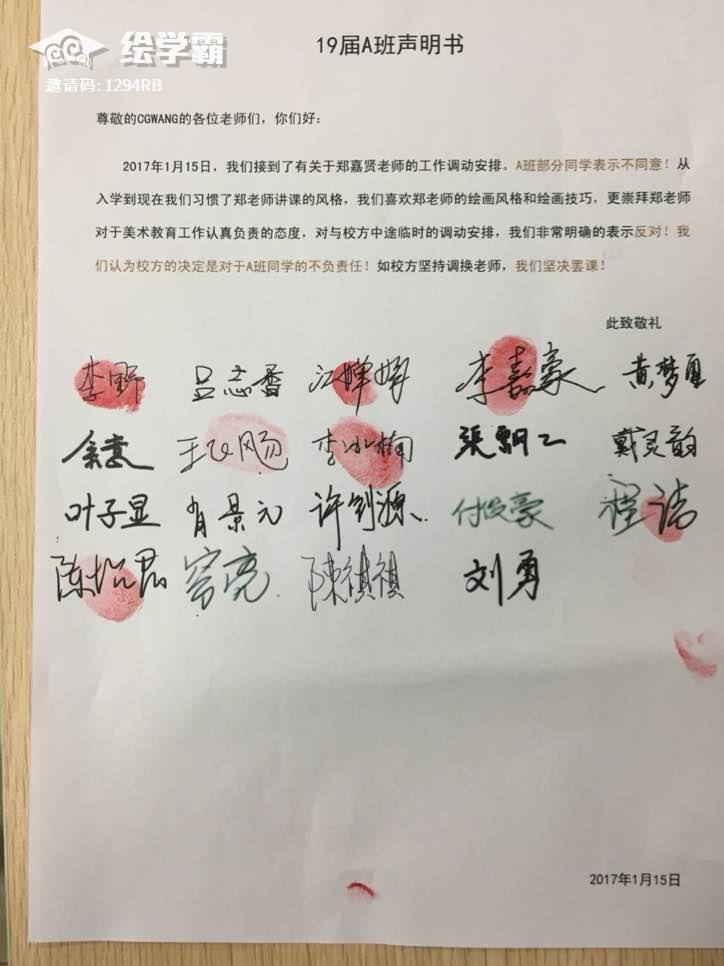 绘学霸
邀请码: 1294RB
19届A班声明书
尊敬的CGWANG的各位老师们，你们好：
2017年1月15日，我们接到了有关于郑嘉贤老师的工作调动安排。A班部分同学表示不同意！从
入学到现在我们习惯了郑老师讲课的风格，我们喜欢郑老师的绘画风格和绘画技巧，更崇拜郑老师
对于美术教育工作认真负责的态度，对与校方中途临时的调动安排，我们非常明确的表示反对！我
们认为校方的决定是对于A班同学的不负责任！如校方坚持调换老师，我们坚决罢课！
此致敬礼
李野 吕志香 江婵婷 李嘉豪 黄梦夏
李小梅 张飘飞 戴灵韵
叶子显 肖景元 许剑源 付俊豪 程洁
陈怡君 陈祺祺 刘勇
2017年1月15日